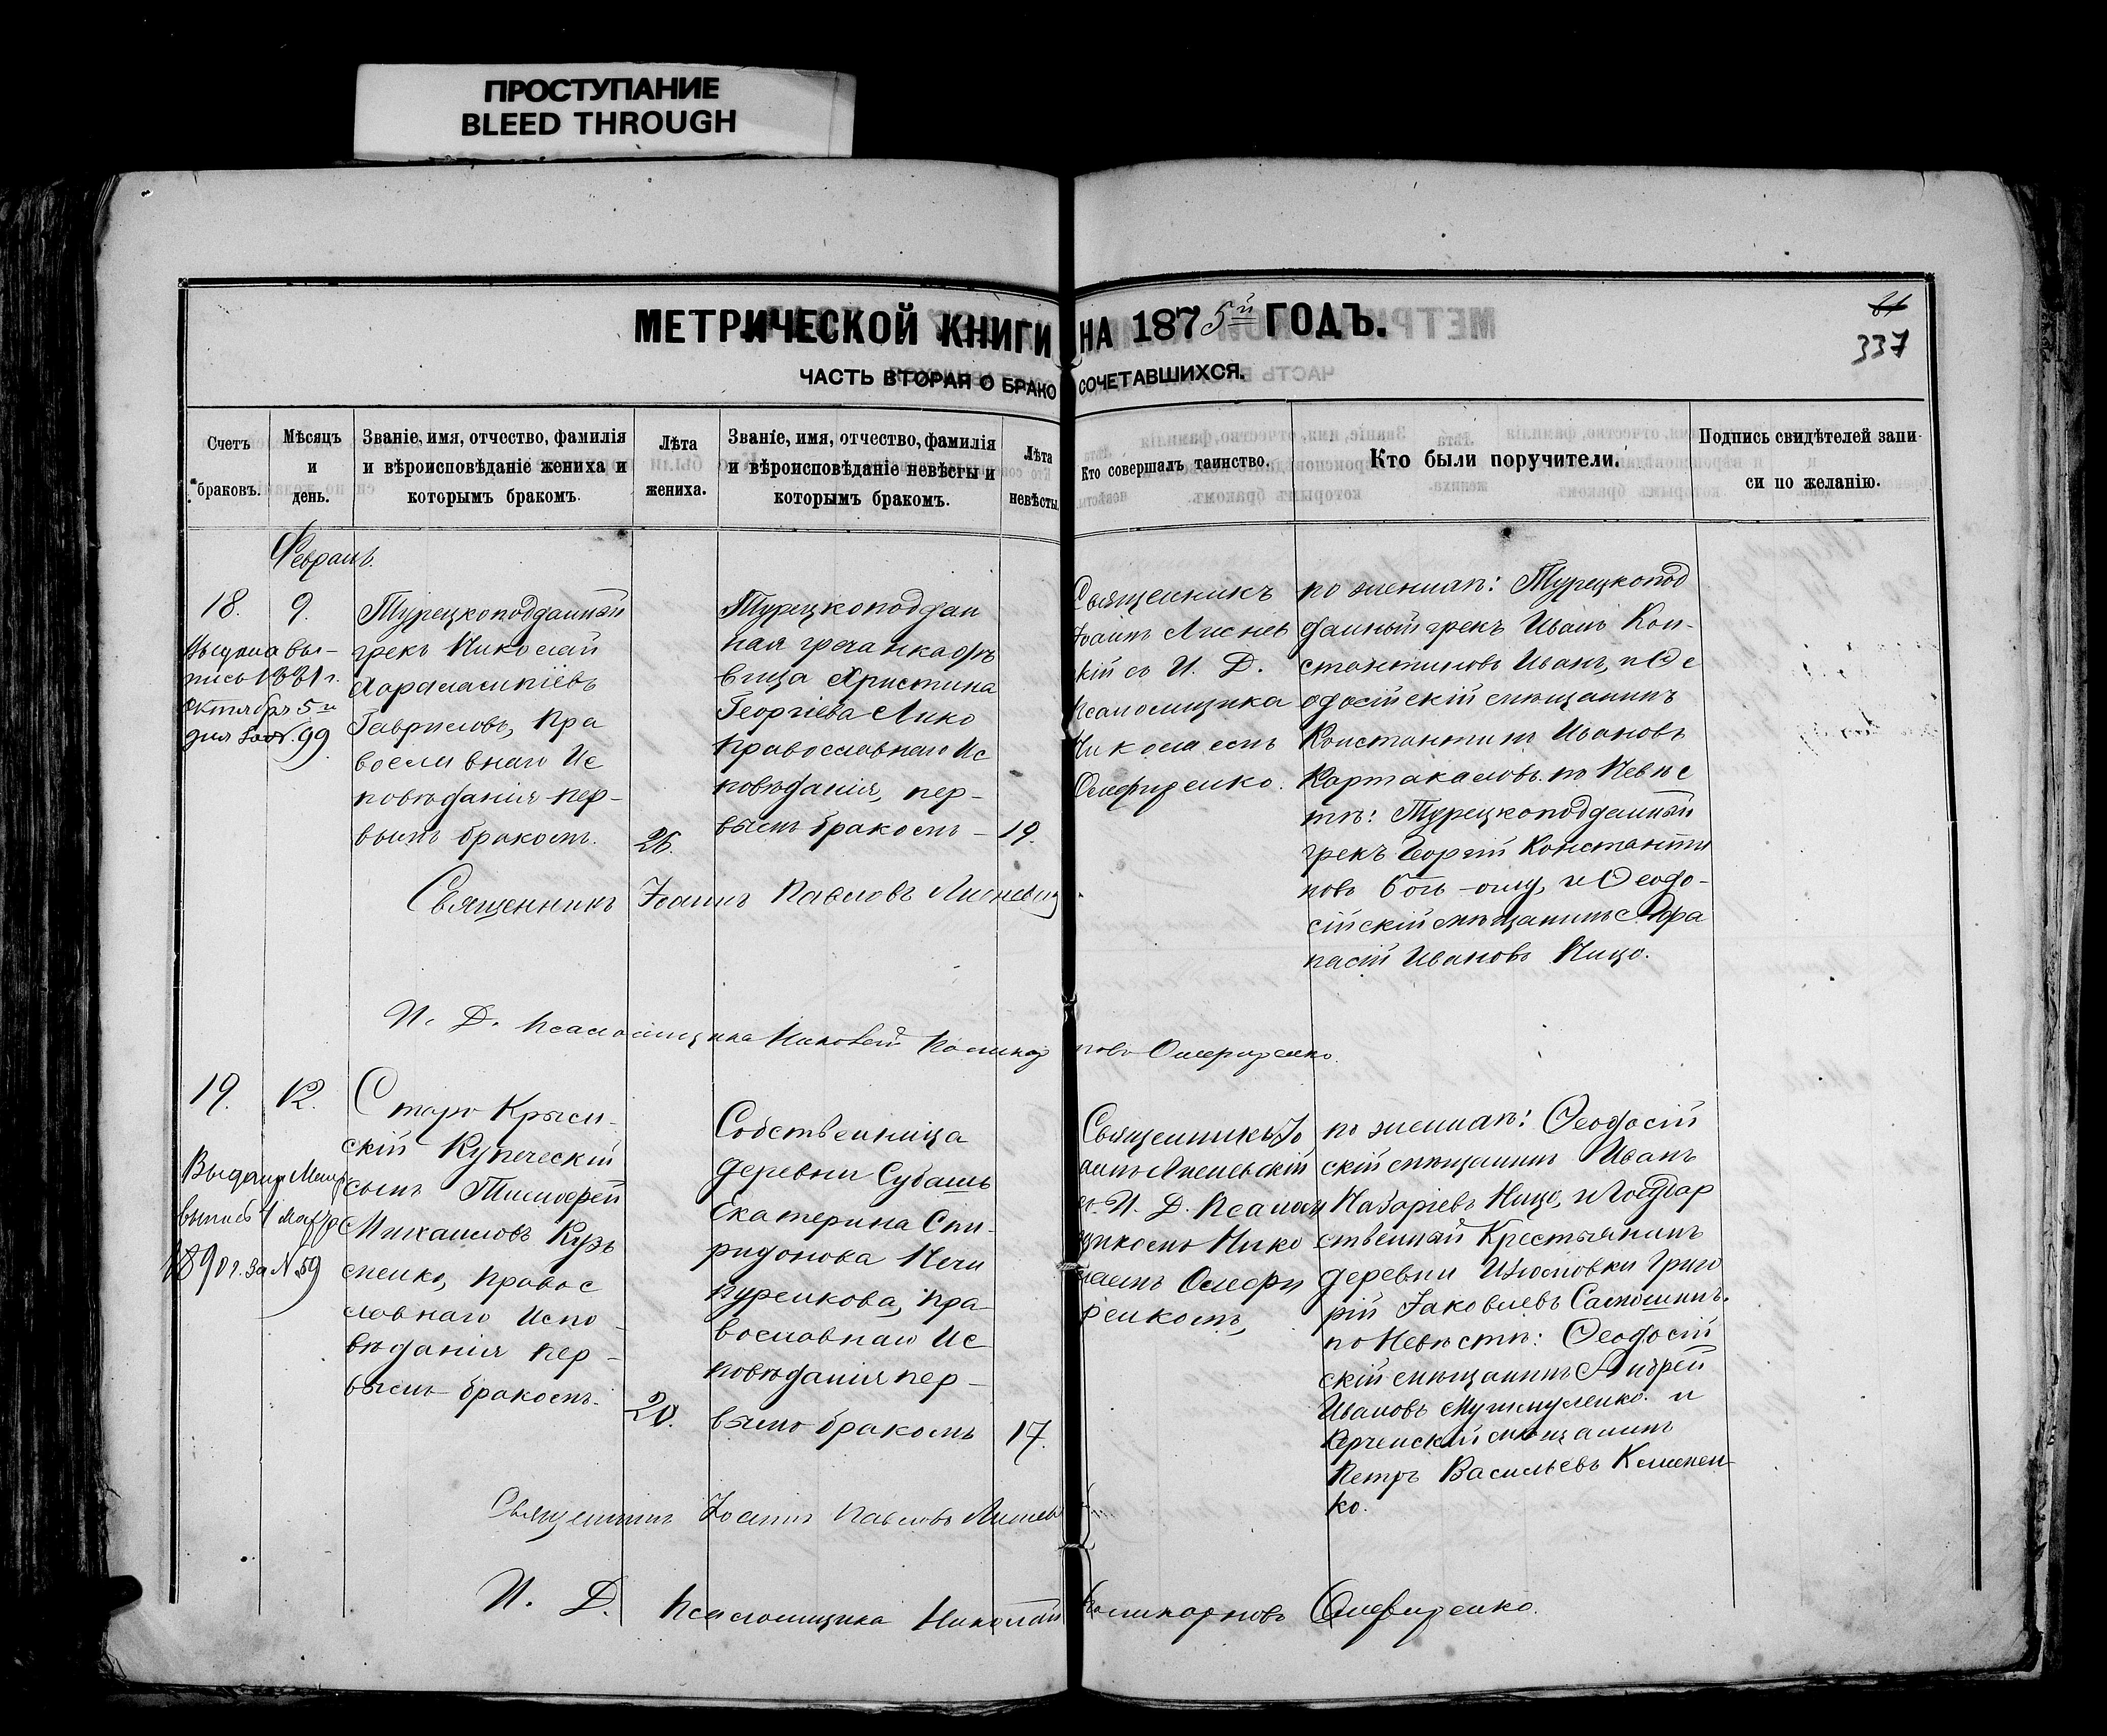 ПРОСТУПАНИЕ
BLEED THROUGH
МЕТРИЧЕСКОЙ КНИГИ НА 1875й ГОДЪ.
337
ЧАСТЬ ВТОРАЯ О БРАКОСОЧЕТАВШИХСЯ.
Счетъ браковъ.
Мѣсяцъ и день.
Званіе, имя, отчество, фамилія
и вѣроисповѣданіе жениха и
которымъ бракомъ.
Лѣта
жениха.
Званіе, имя, отчество, фамилія
и вѣроисповѣданіе невѣсты и
которымъ бракомъ.
Лѣта
невѣсты.
Кто совершалъ таинство.
Кто были поручители.
Подпись свидѣтелей запи-
си по желанію.
Февраль.
18. 9.
Выдана вы-
пись 1881 г.
Октября 5го
дня 99.
Турецкоподданный
грекъ Николай
Харалампіевъ
Гавриловъ, Пра
вославнаго Ис
повѣданія пер-
вымъ бракомъ.
26.
Турецкоподдан
ная гречанка дѣ
вица Христина
Георгіева Лико
Православнаго Ис
повѣданія, пер-
вымъ бракомъ -
19.
Священникъ
Іоаннъ Лиснев
кій съ И. Д.
Псаломщика
Николаемъ
Олефиренко.
по женихѣ: Турецкопод
данный грекъ Иванъ Кон-
стантиновъ Иванъ, и Ѳе
одосійскій мѣщанинъ
Константинъ Ивановъ
Картакаловъ. по Невѣс
тѣ: Турецкоподданный
грекъ Георгій Константи
новъ и Ѳеодо-
сійскій мѣщанинъ Афа
насій Ивановъ Ницо.
Священникъ Іоаннъ Павловъ
И. Д. Псаломщика Николай Поликарповъ Олефиренко.
19. 12.
Выдана Метр
выпись 1 Марта
1890 г. За № 59
Старо Крым-
скій Купеческій
сынъ Тимофей
Михаиловъ Кузь
менко, Правос
лавнаго Испо-
вѣданія пер-
вымъ бракомъ.
20.
Собственница
деревни Субашъ
Екатерина Спи-
ридонова Печи
куренкова, Пра
вославнаго Ис
повѣданія пер-
вымъ бракомъ
17.
Священникъ Іо
аннъ
съ И. Д. Псалом
щикомъ Нико
лаемъ Олефи
ренкомъ,
по женихѣ: Ѳеодосій
скій мѣщанинъ Иванъ
Назаріевъ Ницо, и Государ
ственный Крестьянинъ
деревни Изюмовки Григо
рій Іаковлевъ
по Невѣстѣ: Ѳеодосій
скій мѣщанинъ Андрей
Ивановъ и
Керченскій мѣщанинъ
Петръ Васильевъ Клименен-
ко.
Священникъ Іоаннъ Павловъ
И. Д. Псаломщика Николай Поликарповъ Олефиренко.